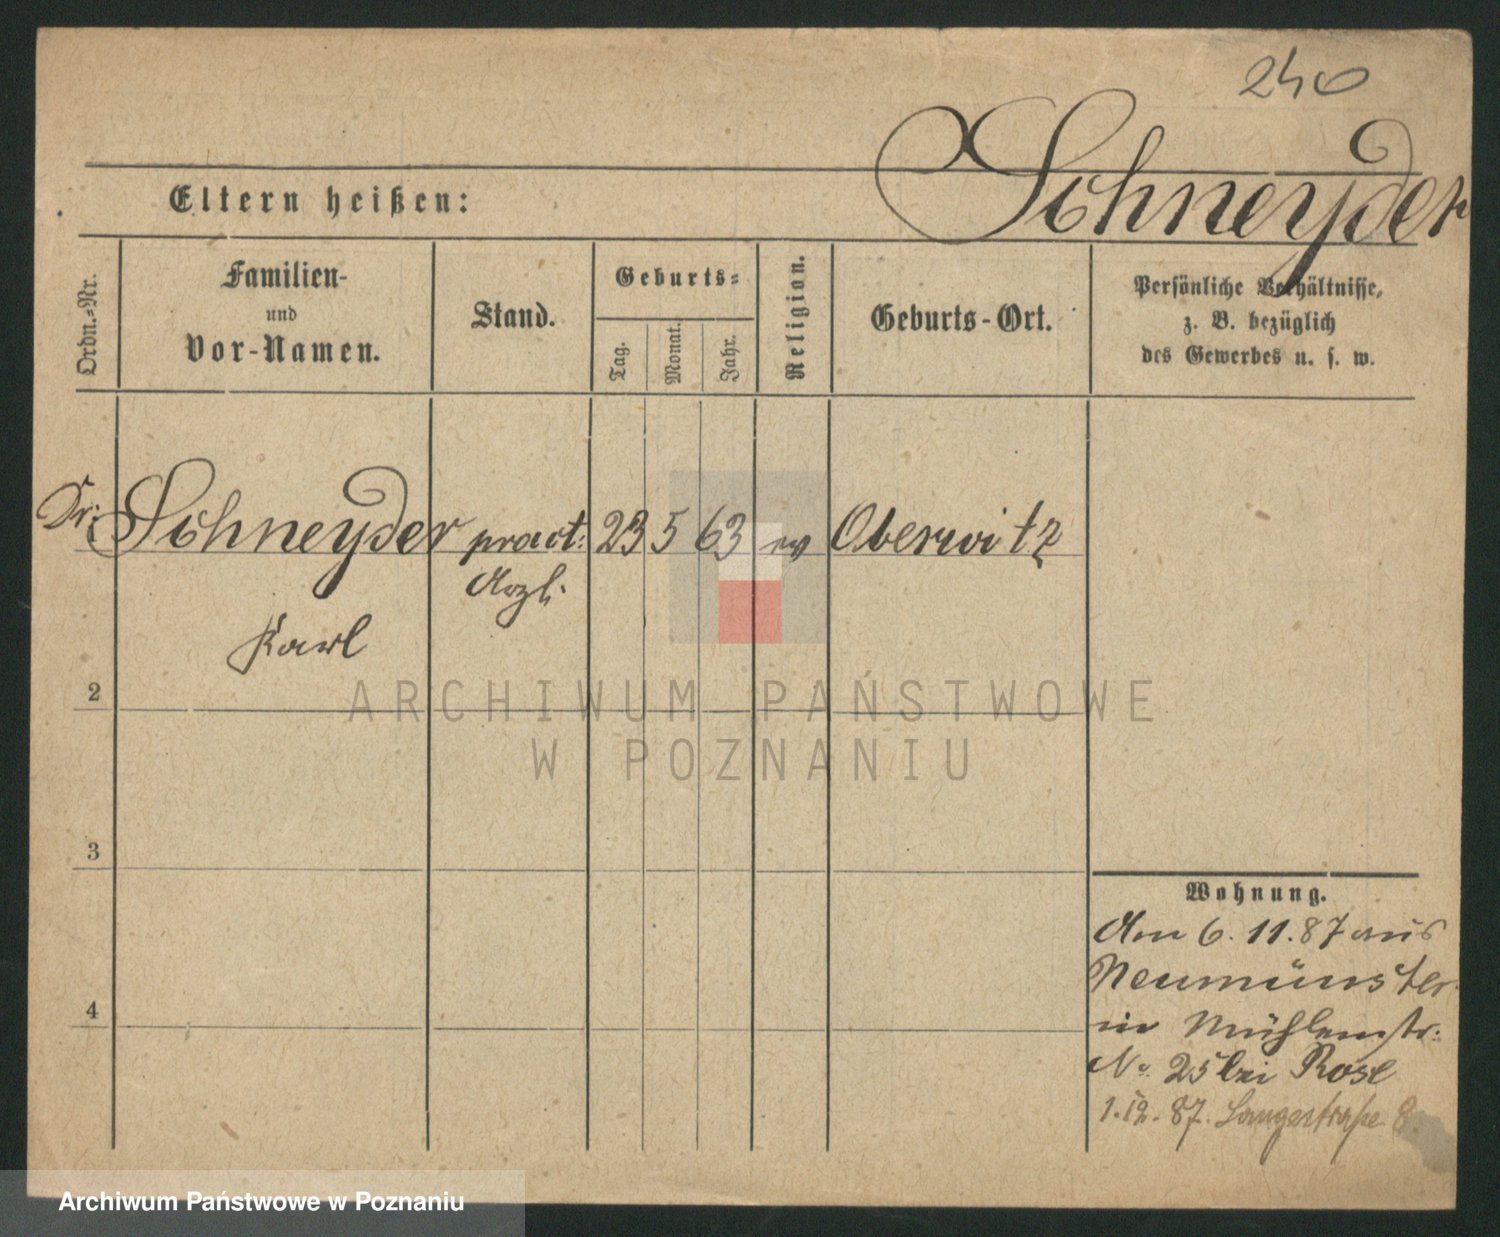 240
Schneyder
Eltern heißen:
Ordn.-Nr.
Familien-
und
Vor-Namen.
Stand.
Geburts-
Tag.
Monat.
Jahr.
Religion.
Geburts-Ort.
Persönliche Verhältnisse,
z. B. bezüglich
des Gewerbes u. s. w.
Dr: Schneyder pract: 23 5 63 ev Oberwitz
Arzt.
Karl
2
ARCHIWUM PAŃSTWOWE
W POZNANIU
3
4
Wohnung.
Am 6. 11. 87 aus
Neumünster
in Mühlenstr.
No 25 bei Rose
1. 12. 87. Langestraße 8.
Archiwum Państwowe w Poznaniu